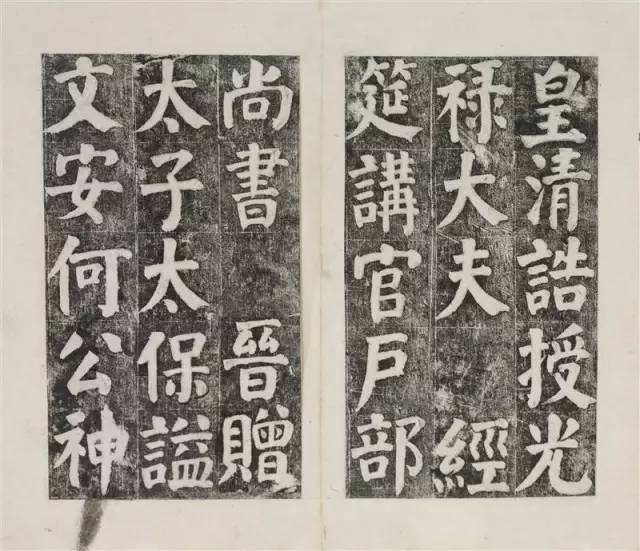 皇清誥授光
禄大夫 經
筵講官戶部
尚書 晉贈
太子太保諡
文安何公神